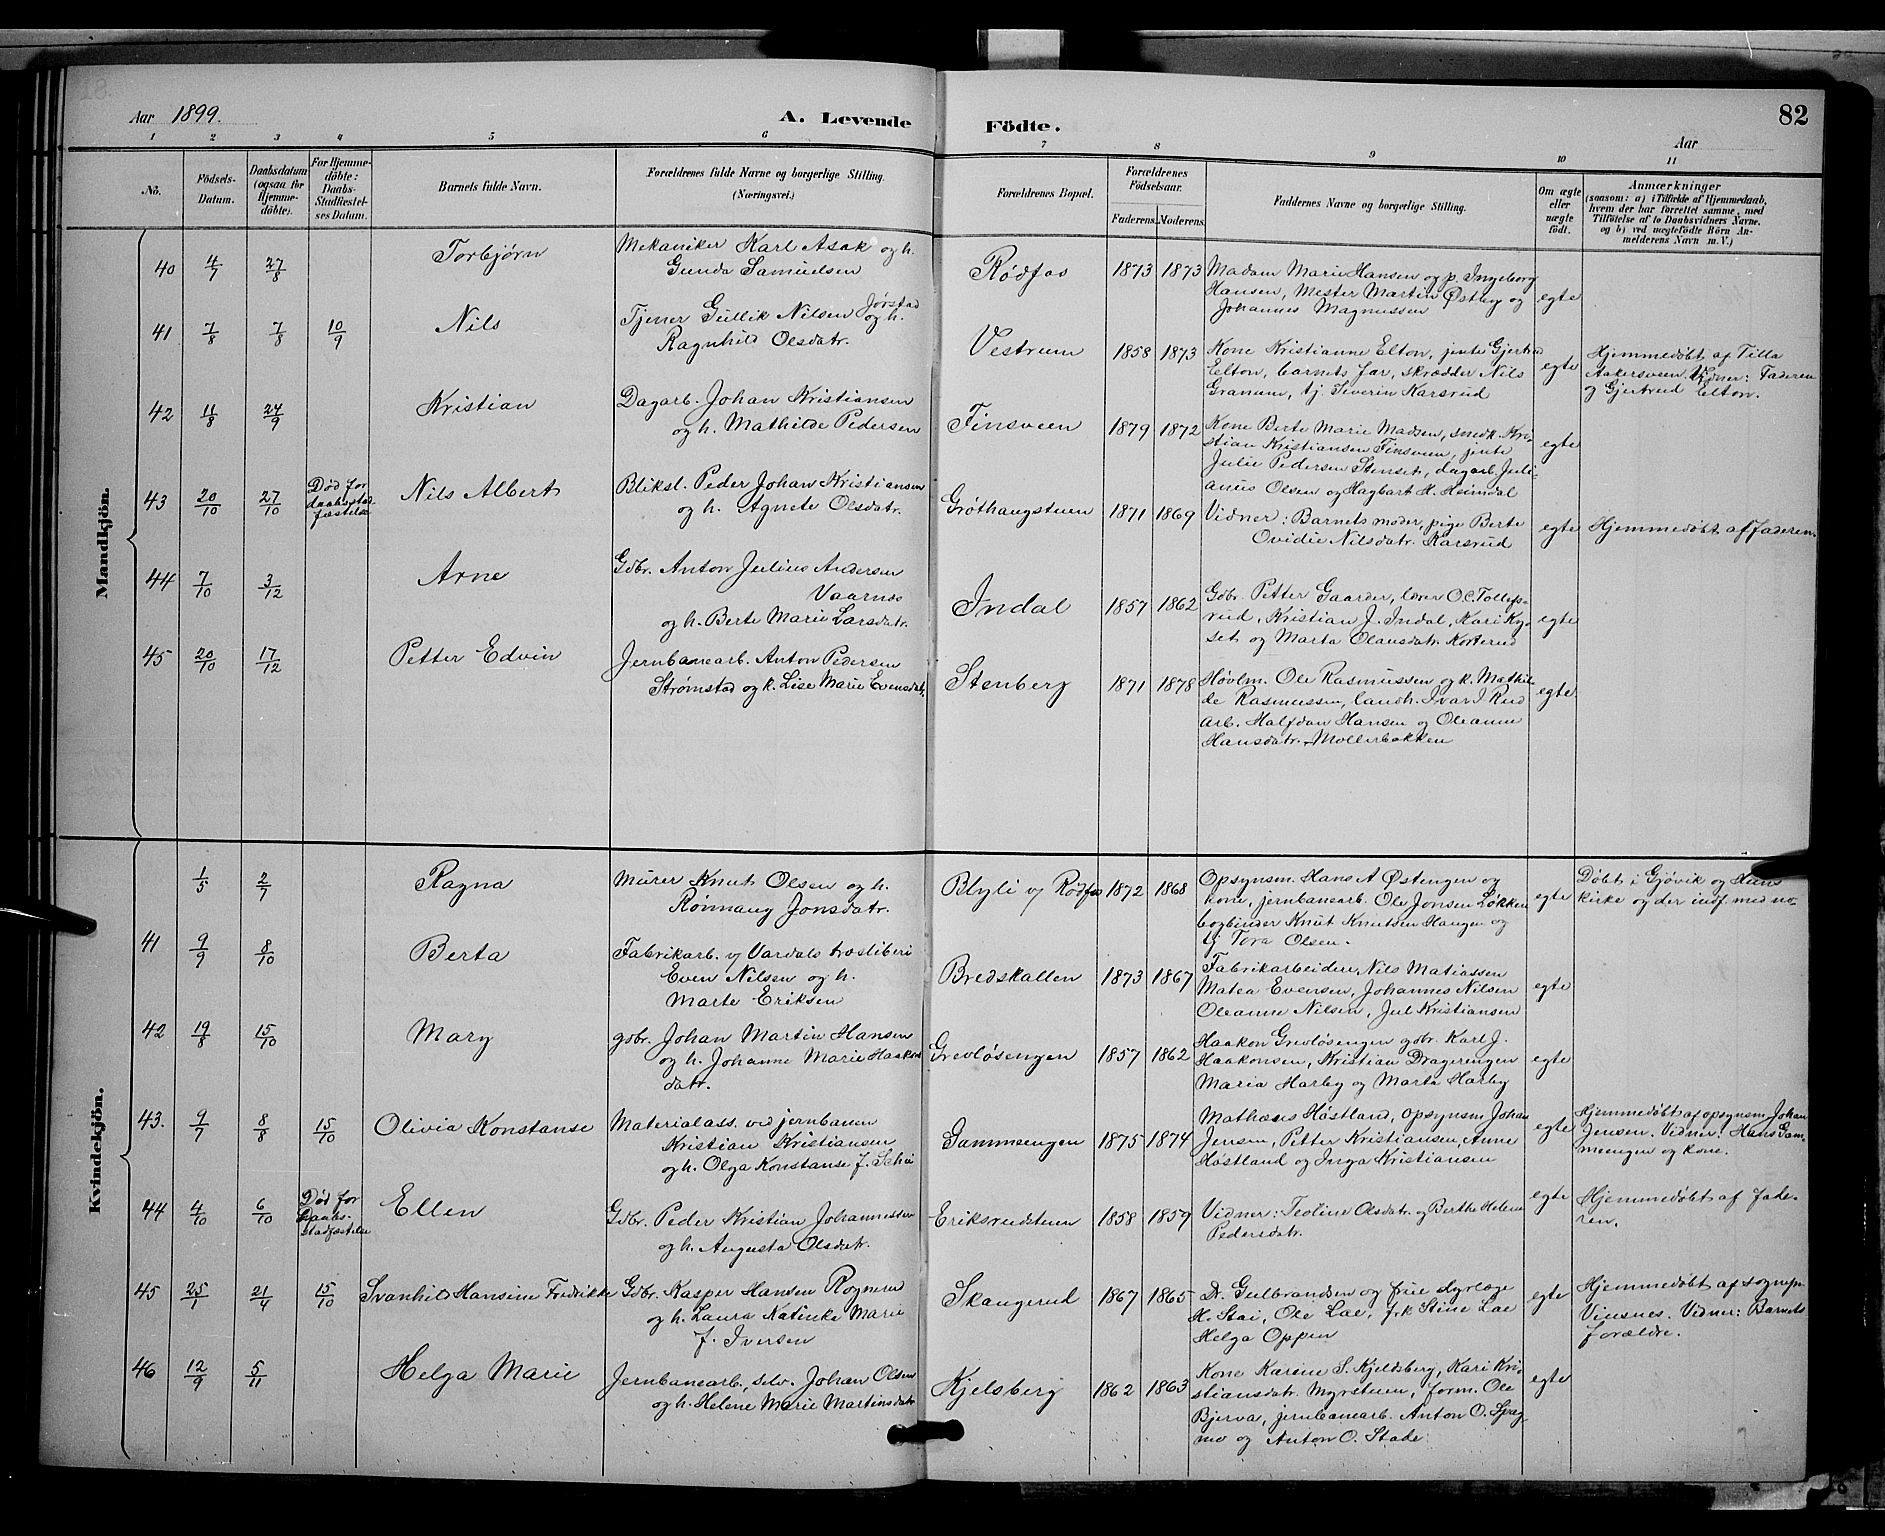 82
Aar 1899.
A. Levende Födte.
Aar
1 2 3 4 5 6 7 8 9 10 11
No.
Födsels-Datum.
Daabsdatum (ogsaa for Hjemmedöbte).
For Hjemmedöbte: Daabs-Stadfæstelses Datum.
Barnets fulde Navn.
Forældrenes fulde Navne og borgerlige Stilling.
(Næringsvei.)
Forældrenes Bopæl.
Forældrenes Födselsaar.
Faderens. Moderens.
Faddernes Navne og borgerlige Stilling.
Om ægte eller uægte födt.
Anmærkninger
(saasom: a) i Tilfælde af Hjemmedaab, hvem der har forrettet samme, med Tilföielse af to Daabsvidners Navne, og b) ved uægtefödte Börn Anmelderens Navn m. V.)
Mandkjön.
40 4/7 27/8 Torbjørn
Mekaniker Karl Asak og h.
Gunda Samuelsen
Rødfos 1873 1873
Madam Marie Hansen og p. Ingeborg
Hansen, Mester Martin Østby og
Johannes Magnussen
egte
41 7/8 7/8 10/9 Nils
Tjener Gullik Nilsen Jørstad og h.
Ragnhild Olsdatr.
Vestrum 1858 1873
Kone Kristianne Elton, jente Gjertrud
Elton, barnets far, skrædder Nils
Granum, tj. Siverin Karsrud
egte
Hjemmedøbt af Tilla
Aakersveen. Vidner: Faderen
og Gjertrud Elton.
42 11/8 24/9 Kristian
Dagarb. Johan Kristiansen
og h. Mathilde Pedersen
Finsveen 1879 1872
Kone Berte Marie Madsen, smedk. Kri-
stian Kristiansen Finsveen, jente
Julie Pedersen Stenset, dagarb. Juli-
anus Olsen og Hagbart H. Heimdal
egte
43 20/10 27/10 Død før
daabsstad-
fæstelse
Nils Albert
Bliksl. Peder Johan Kristiansen
og h. Agnete Olsdatr.
Grøthaugstuen 1871 1869
Vidner: Barnets moder, pige Berte
Ovidie Nilsdatr. Karsrud
egte
Hjemmedøbt af faderen.
44 7/10 3/12 Arne
Gdbr. Anton Julius Andersen
Vaarnes
og h. Berte Marie Larsdatr.
Indal 1857 1862
Gdbr. Petter Gaarder, lærer O.C. Tollefs-
rud, Kristian J. Indal, Kari Ky-
set og Marta Olausdatr. Korterud
egte
45 20/10 17/12 Petter Edvin
Jernbanearb. Anton Pedersen
Strømstad og h. Lise Marie Evensdatr.
Stenberg 1871 1878
Høvlm. Ole Rasmussen og k. Mathil-
de Rasmussen, landh. Ivar J. Rud
arb. Halfdan Hansen og Oleanne
Hansdatr. Møllerbakken
egte
Kvindekjön.
1/5 2/7 Ragna
Murer Knut Olsen og h.
Rønnaug Jonsdatr.
Blyli v/ Rødfos 1872 1868
Opsynsm. Hans A Østengen og
kone, jernbanearb. Ole Jonsen Løkken
bogbinder Knut Knutsen Haugen og
tj Tora Olsen.
egte
Døbt i Gjøvik og Huns
kirke og der indf. med no-
41 9/9 8/10 Berta
Fabrikarb. v/ Vardals træsliberi
Even Nilsen og h.
Marte Eriksen
Bredskallen 1873 1867
Fabrikarbeidere Nils Matiassen
Matea Evensen, Johannes Nilsen
Oleanne Nilsen, Jul Kristiansen
egte
42 19/8 15/10 Mary
gdbr. Johan Martin Hansen
og h. Johanne Marie Haakons
datr.
Grevløsengen 1857 1862
Haakon Grevløsengen gdbr. Karl J.
Haakonsen, Kristian Dragerengen
Maria Harby og Marta Harby
egte
43. 9/7 8/8 15/10 Olivia Konstanse
Materialass. ved jernbanen
Kristian Kristiansen
og h. Olga Konstanse f. Schei
Gammengen 1875 1874
Mathæus Høstland, opsynsm. Johan
Jensen, Petter Kristiansen, Anne
Høstland og Inga Kristiansen
egte
Hjemmedøbt af opsynsm. Johan
Jensen. Vidner: Hans Gam-
mengen og kone.
44 4/10 6/10 Død før
daabs-
stadfæstelse
Ellen
Gdbr. Peder Kristian Johannessen
og h. Augusta Olsdatr.
Eriksrudstuen 1858 1859
Vidner: Teoline Olsdatr. og Berthe Helene
Pedersdatr.
egte
Hjemmedøbt af fade-
ren.
45 25/1 21/4 15/10 Svanhild Hansine Fredrikke
Gdbr. Kasper Hansen Rognerud
og h. Laura Natinke Marie
f. Iversen
Skaugerud 1867 1865
Dr. Gulbrandsen og frue dyrlæge
H. Stai, Ole Lae, frk Stine Lae
Helga Oppen
egte
Hjemmedøbt af sognepr.
Viesnes. Vidner: Barnets
forældre.
46 12/9 5/11 Helga Marie
Jernbanearb., selv. Johan Olsen
og h. Helene Marie Martinsdatr
Kjelsberg 1862 1863
Kone Karine S. Kjeldsberg, Kari Kri-
stiansdatr. Myrstuen, form. Ole
Bjerva, jernbanearb. Anton O. Spæg-
mo og Anton O. Stade
egte